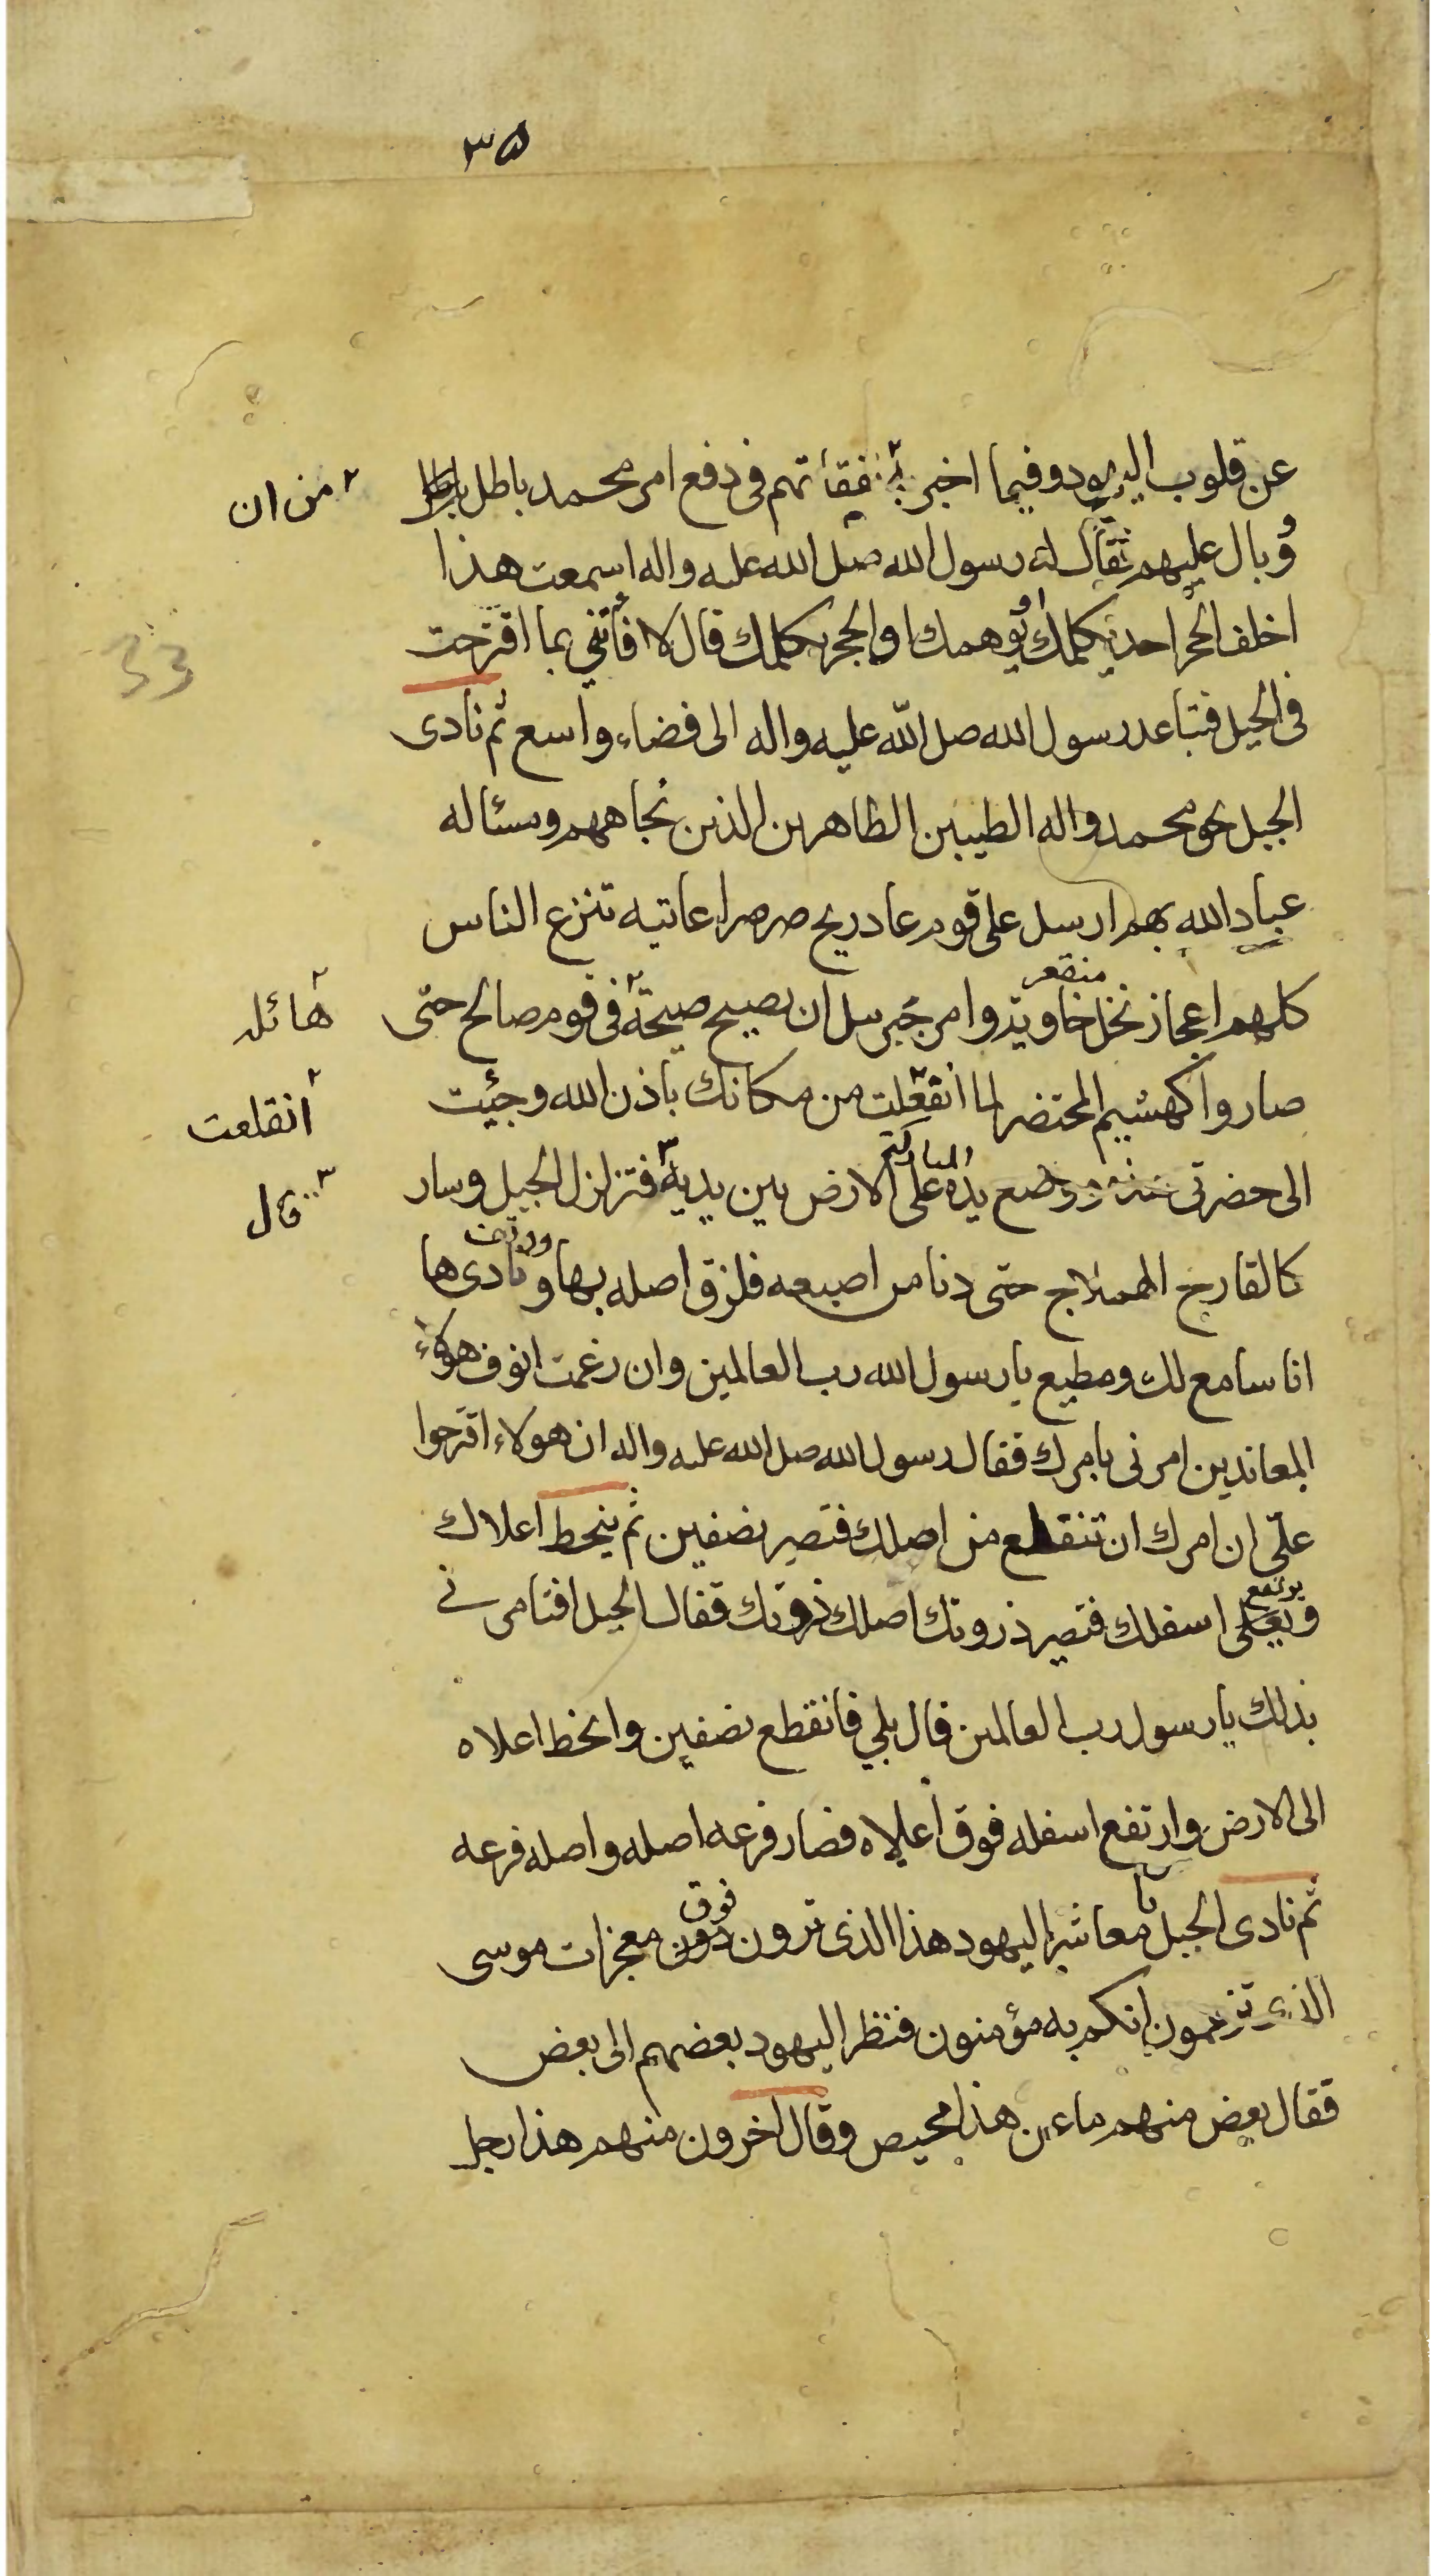 ٣٥
عن قلوب اليهود وفيما اخبر به نفقاتهم فى دفع امر محمد باطل
من ان
وبال عليهم فقال له رسول الله صلى الله عليه واله اسمعت هذا
اخلف الحجر احد يكلمك ويوهمك ان الحجر يكلمك قال لا فأتنى بما اقترحت
33
فى الجبل فتباعد رسول الله صلى الله عليه واله الى فضاء واسع ثم نادى
الجبل بحق محمد واله الطيبين الطاهرين الذين بجاههم ومسئاله
عباد الله بهم ارسل على قوم عاد ريح صرصرا عاتيه تنزع الناس
منقعر
كانهم اعجاز نخل خاوية وامر جبرئيل ان يصيح صيحة فى قوم صالح حتى
هائله
صاروا كهشيم المحتضر لما انقعلت من مكانك باذن الله وجيئت
انقلعت
المباركة
الى حضرتى ووضع يده على الارض بين يديه فتزلزل الجبل وسار
قال
كالقارح الهملاج حتى دنا من اصبعه فلزق اصله بها ونادى ها
ووقف
انا سامع لك ومطيع يا رسول الله رب العالمين وان رغمت انوف هؤلاء
المعاندين امرنى بامرك فقال رسول الله صلى الله عليه واله ان هولاء اقترحوا
على ان امرك ان تنقطع من اصلك فتصير نصفين ثم ينحط اعلاك
يرتفع
ويعلى اسفلك فتصير ذروتك اصلك ذروتك فقال الجبل افتامرنى
بذلك يا رسول رب العالمين قال بلى فانقطع نصفين وانحط اعلاه
الى الارض وارتفع اسفله فوق اعلاه فصار فرعه اصله واصله فرعه
ثم نادى الجبل يا معاشر اليهود هذا الذى ترون دون معجزات موسى
فوق
الذى تزعمون انكم به مؤمنون فنظر اليهود بعضهم الى بعض
فقال بعض منهم ماء عن هذا محيص وقال اخرون منهم هذا رجل